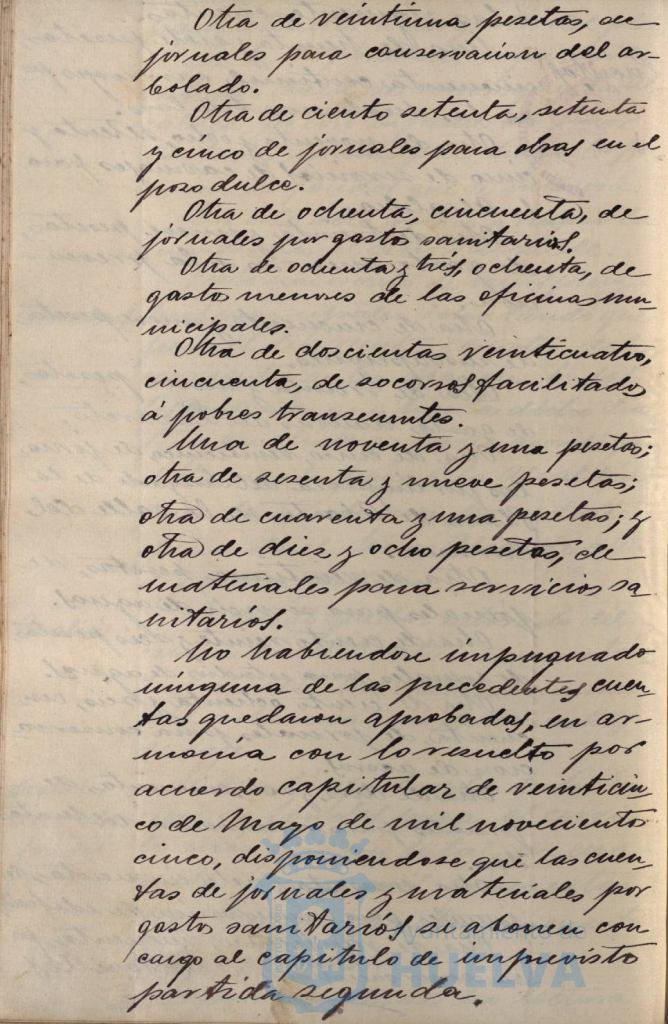 Otra de veintiuna pesetas, de
jornales para conservacion del ar-
bolado.
Otra de ciento setenta, setenta
y cinco de jornales para obras en el
pozo dulce.
Otra de ochenta, cincuenta, de
jornales por gastos sanitarios.
Otra de ochenta y trés, ochenta, de
gastos menores de las oficinas mu-
nicipales.
Otra de doscientas veinticuatro,
cincuenta, de socorros facilitados
á pobres transeuntes.
Una de noventa y una pesetas;
otra de sesenta y nueve pesetas;
otra de cuarenta y una pesetas; y
otra de diez y ocho pesetas, de
materiales para servicios sa-
nitarios.
No habiendose impugnado
ninguna de las precedentes cuen-
tas quedaron aprobadas, en ar-
monia con lo resuelto por
acuerdo capitular de veinticin-
co de Mayo de mil novecientos
cinco, disponiendose que las cuen-
tas de jornales y materiales por
gastos sanitarios se abonen con
cargo al capitulo de imprevisto
partida segunda.
Ayuntamiento de
HUELVA